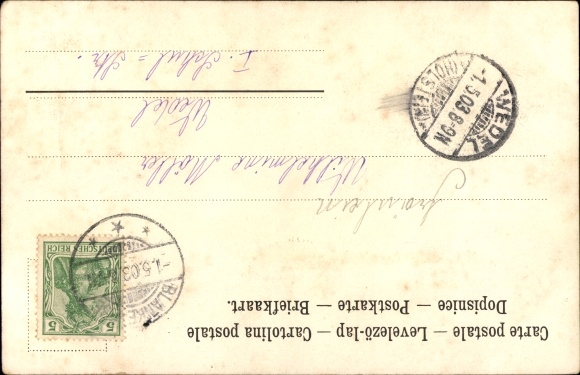 Carte postale — Levelező-lap — Cartolina postale
Dopisnice — Postkarte — Briefkaart.
5
DEUTSCHES REICH
BLANKE
-1.5.03
Fräulein
Wilhelmine Möller
Wedel
I. Schul-Str.
WEDEL
-1.5.03.8-9N
(HOLSTEIN)